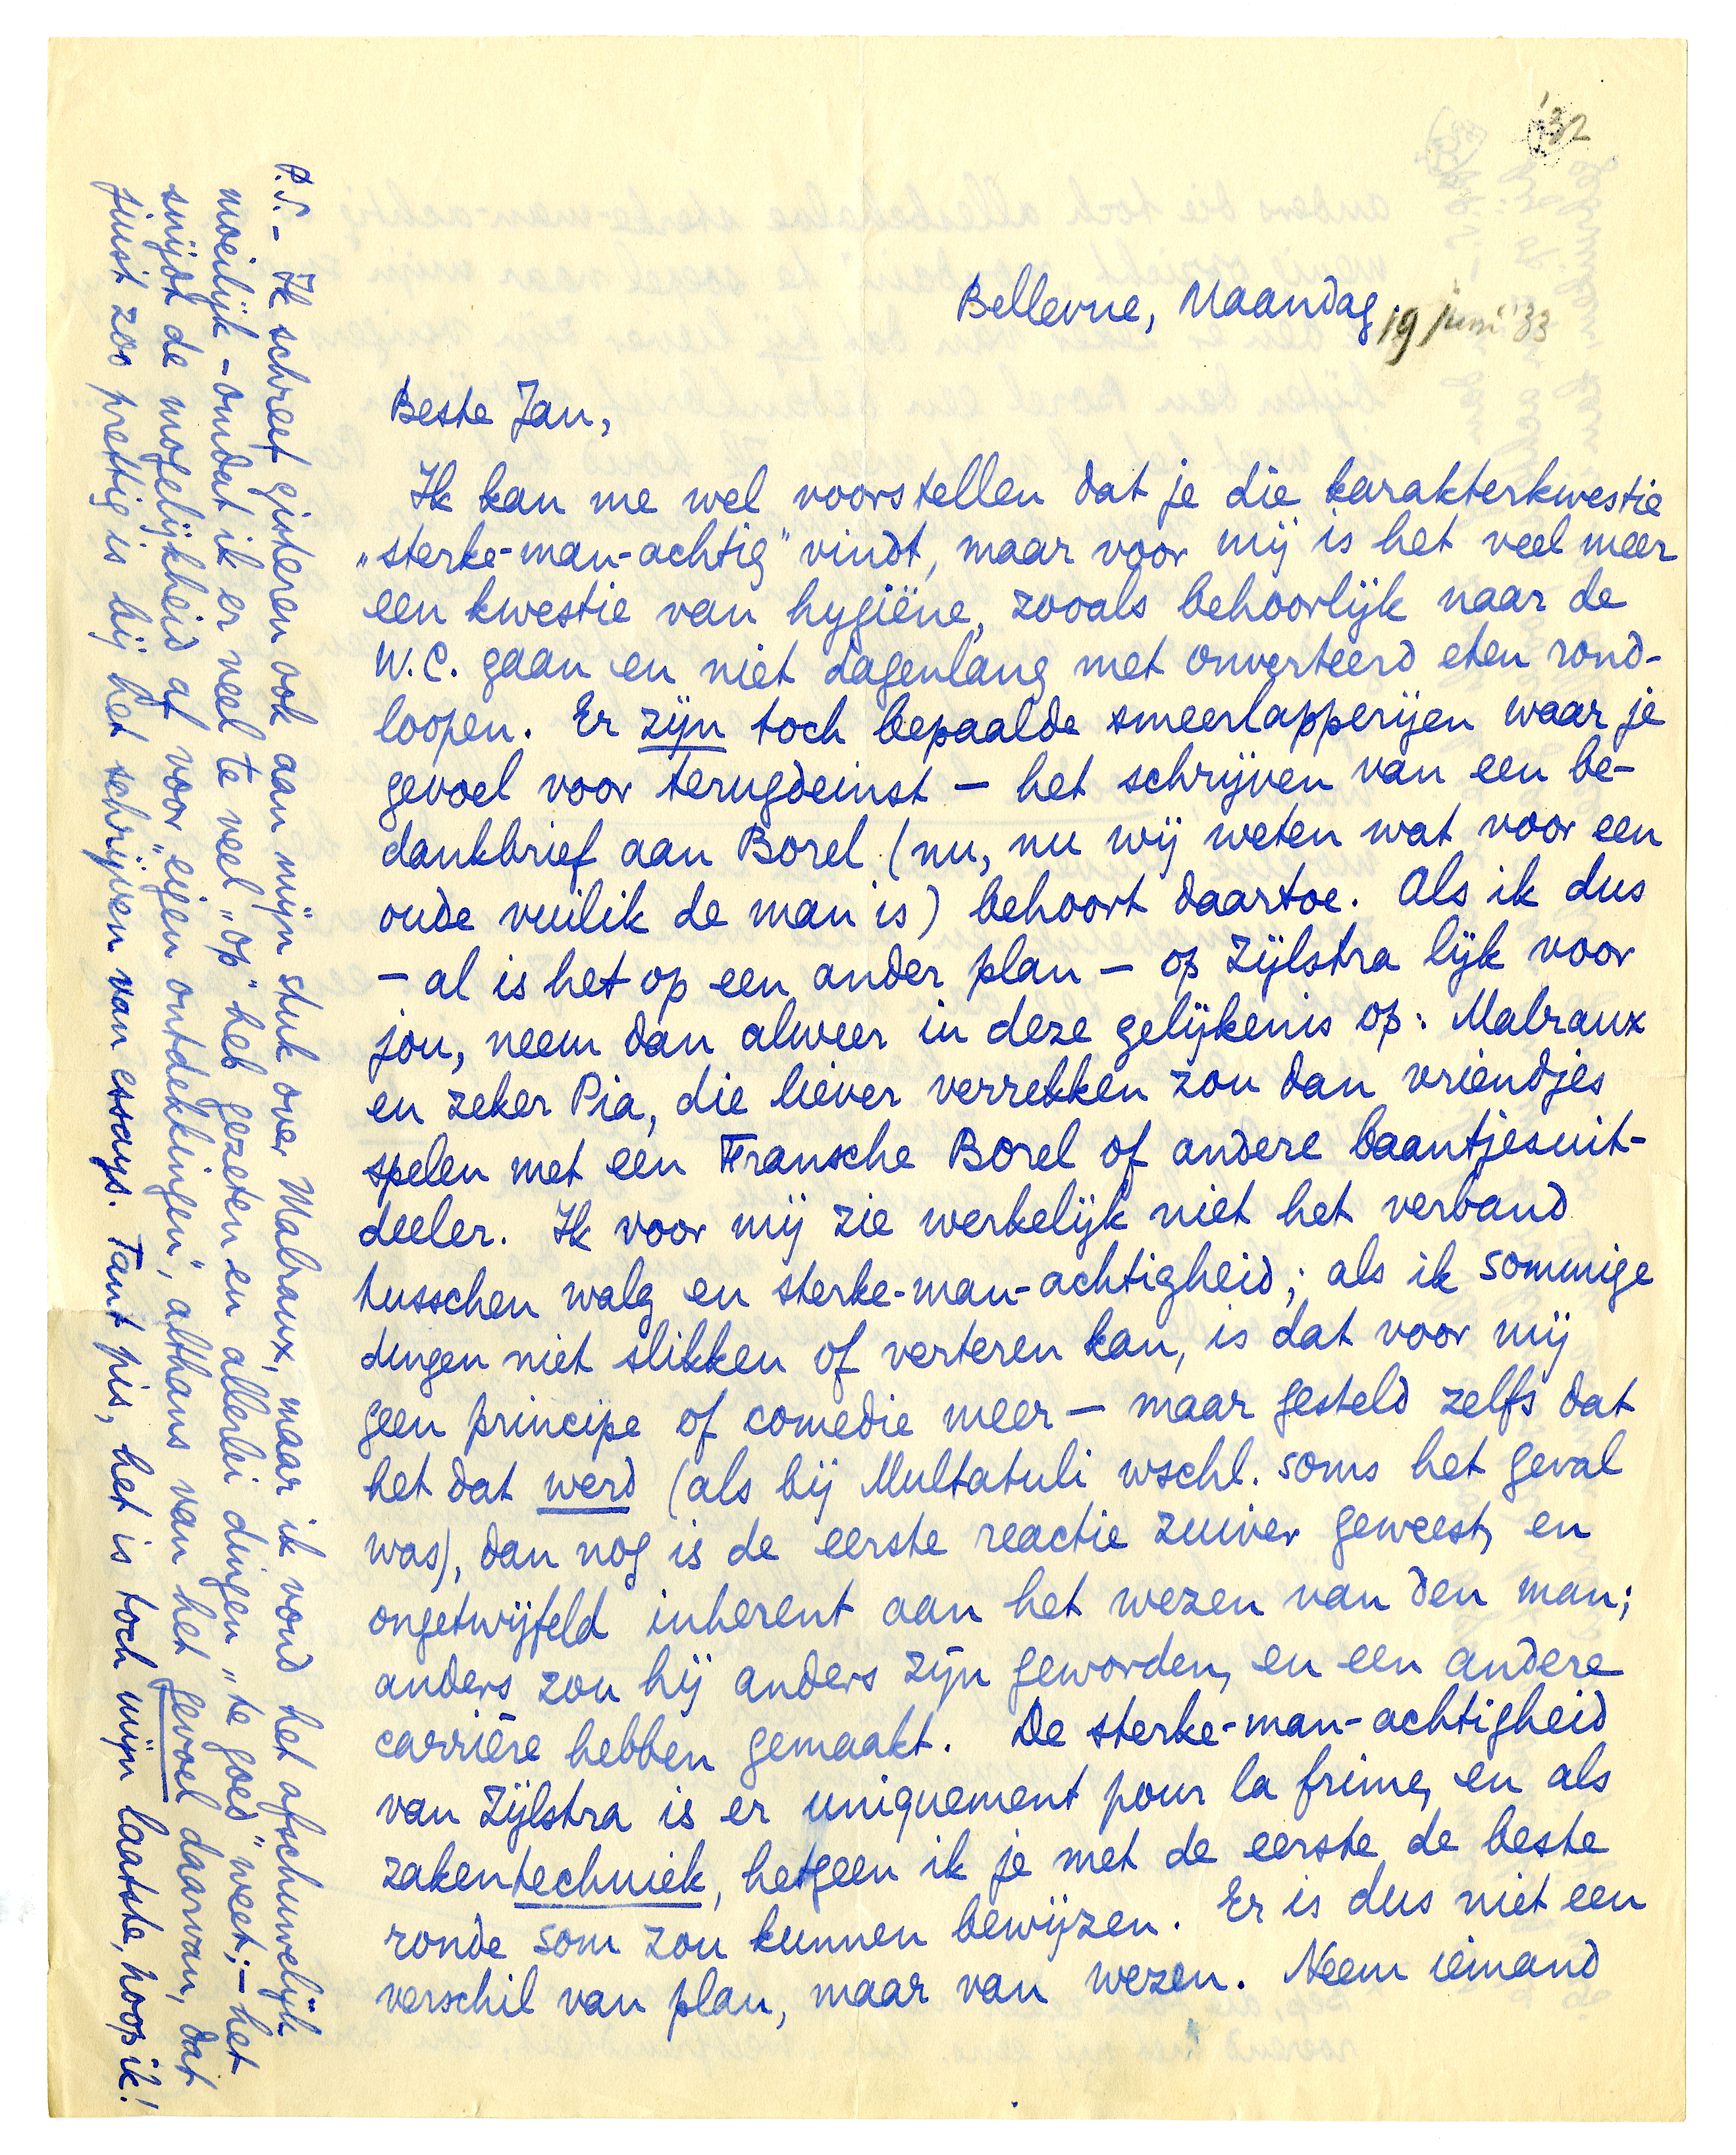 '32
Bellevue, Maandag. 19 juni '33
Beste Jan,
Ik kan me wel voorstellen dat je die karakterkwestie
„sterke-man-achtig" vindt, maar voor mij is het veel meer
een kwestie van hygiëne, zooals behoorlijk naar de
W.C. gaan en niet dagenlang met onverteerd eten rond-
loopen. Er zijn toch bepaalde smeerlapperijen waar je
gevoel voor terugdeinst – het schrijven van een be-
dankbrief aan Borel (nu, nu wij weten wat voor een
oude vuilik de man is) behoort daartoe. Als ik dus
– al is het op een ander plan – op Zijlstra lijk voor
jou, neem dan alweer in deze gelijkenis op: Malraux
en zeker Pia, die liever verrekken zou dan vriendjes
spelen met een Fransche Borel of andere baantjesuit-
deeler. Ik voor mij zie werkelijk niet het verband
tusschen walg en sterke-man-achtigheid; als ik sommige
dingen niet slikken of verteren kan, is dat voor mij
geen principe of comedie meer – maar gesteld zelfs dat
het dat werd (als bij Multatuli wschl. soms het geval
was), dan nog is de eerste reactie zuiver geweest, en
ongetwijfeld inherent aan het wezen van den man;
anders zou hij anders zijn geworden, en een andere
carrière hebben gemaakt. De sterke-man-achtigheid
van Zijlstra is er uniquement pour la frime, en als
zakentechniek, hetgeen ik je met de eerste de beste
ronde som zou kunnen bewijzen. Er is dus niet een
verschil van plan, maar van wezen. Neem iemand
P.S. – Ik schreef gisteren ook aan mijn stuk over Malraux, maar ik vond het afschuwelijk
moeilijk – omdat ik er veel te veel „op" heb gezeten en allerlei dingen „te goed" weet; – het
snijdt de mogelijkheid af voor „eigen ontdekkingen", althans van het gevoel daarvan, dat
juist zoo prettig is bij het schrijven van essays. Tant pis, het is toch mijn laatste, hoop ik!